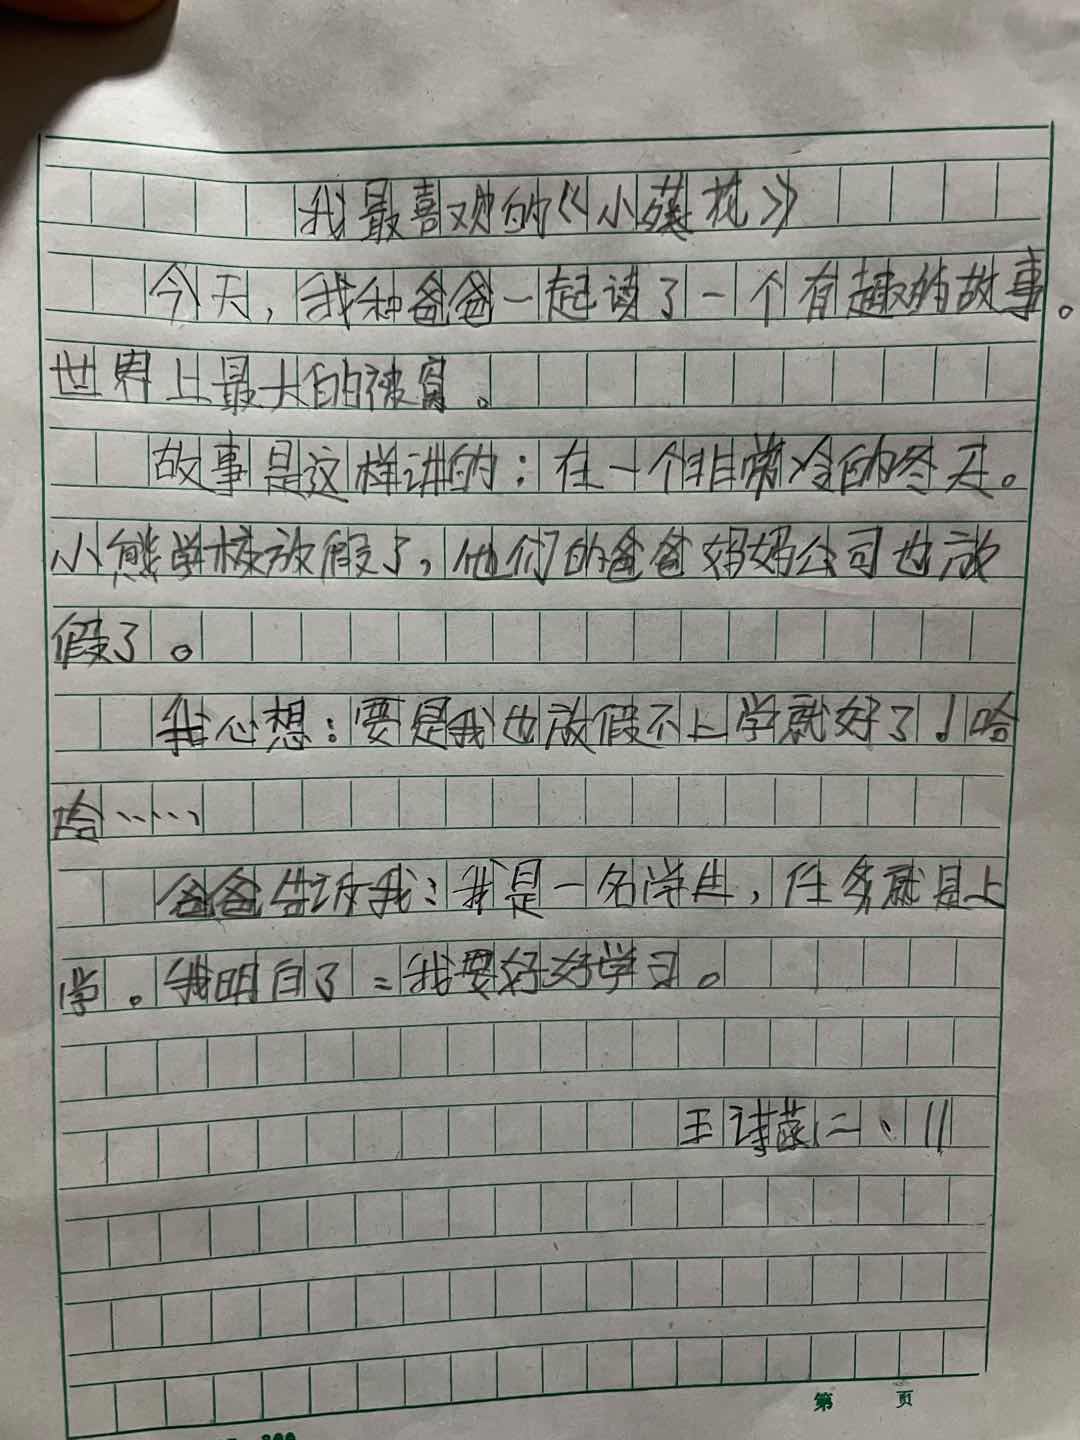 我最喜欢的《小葵花》
今天，我和爸爸一起读了一个有趣的故事。
世界上最大的被窝。
故事是这样讲的：在一个非常冷的冬天。
小熊学校放假了，他们的爸爸妈妈公司也放
假了。
我心想：要是我也放假不上学就好了！哈
哈……
爸爸告诉我：我是一名学生，任务就是上
学。我明白了：我要好好学习。
王诗 二、11
第 页